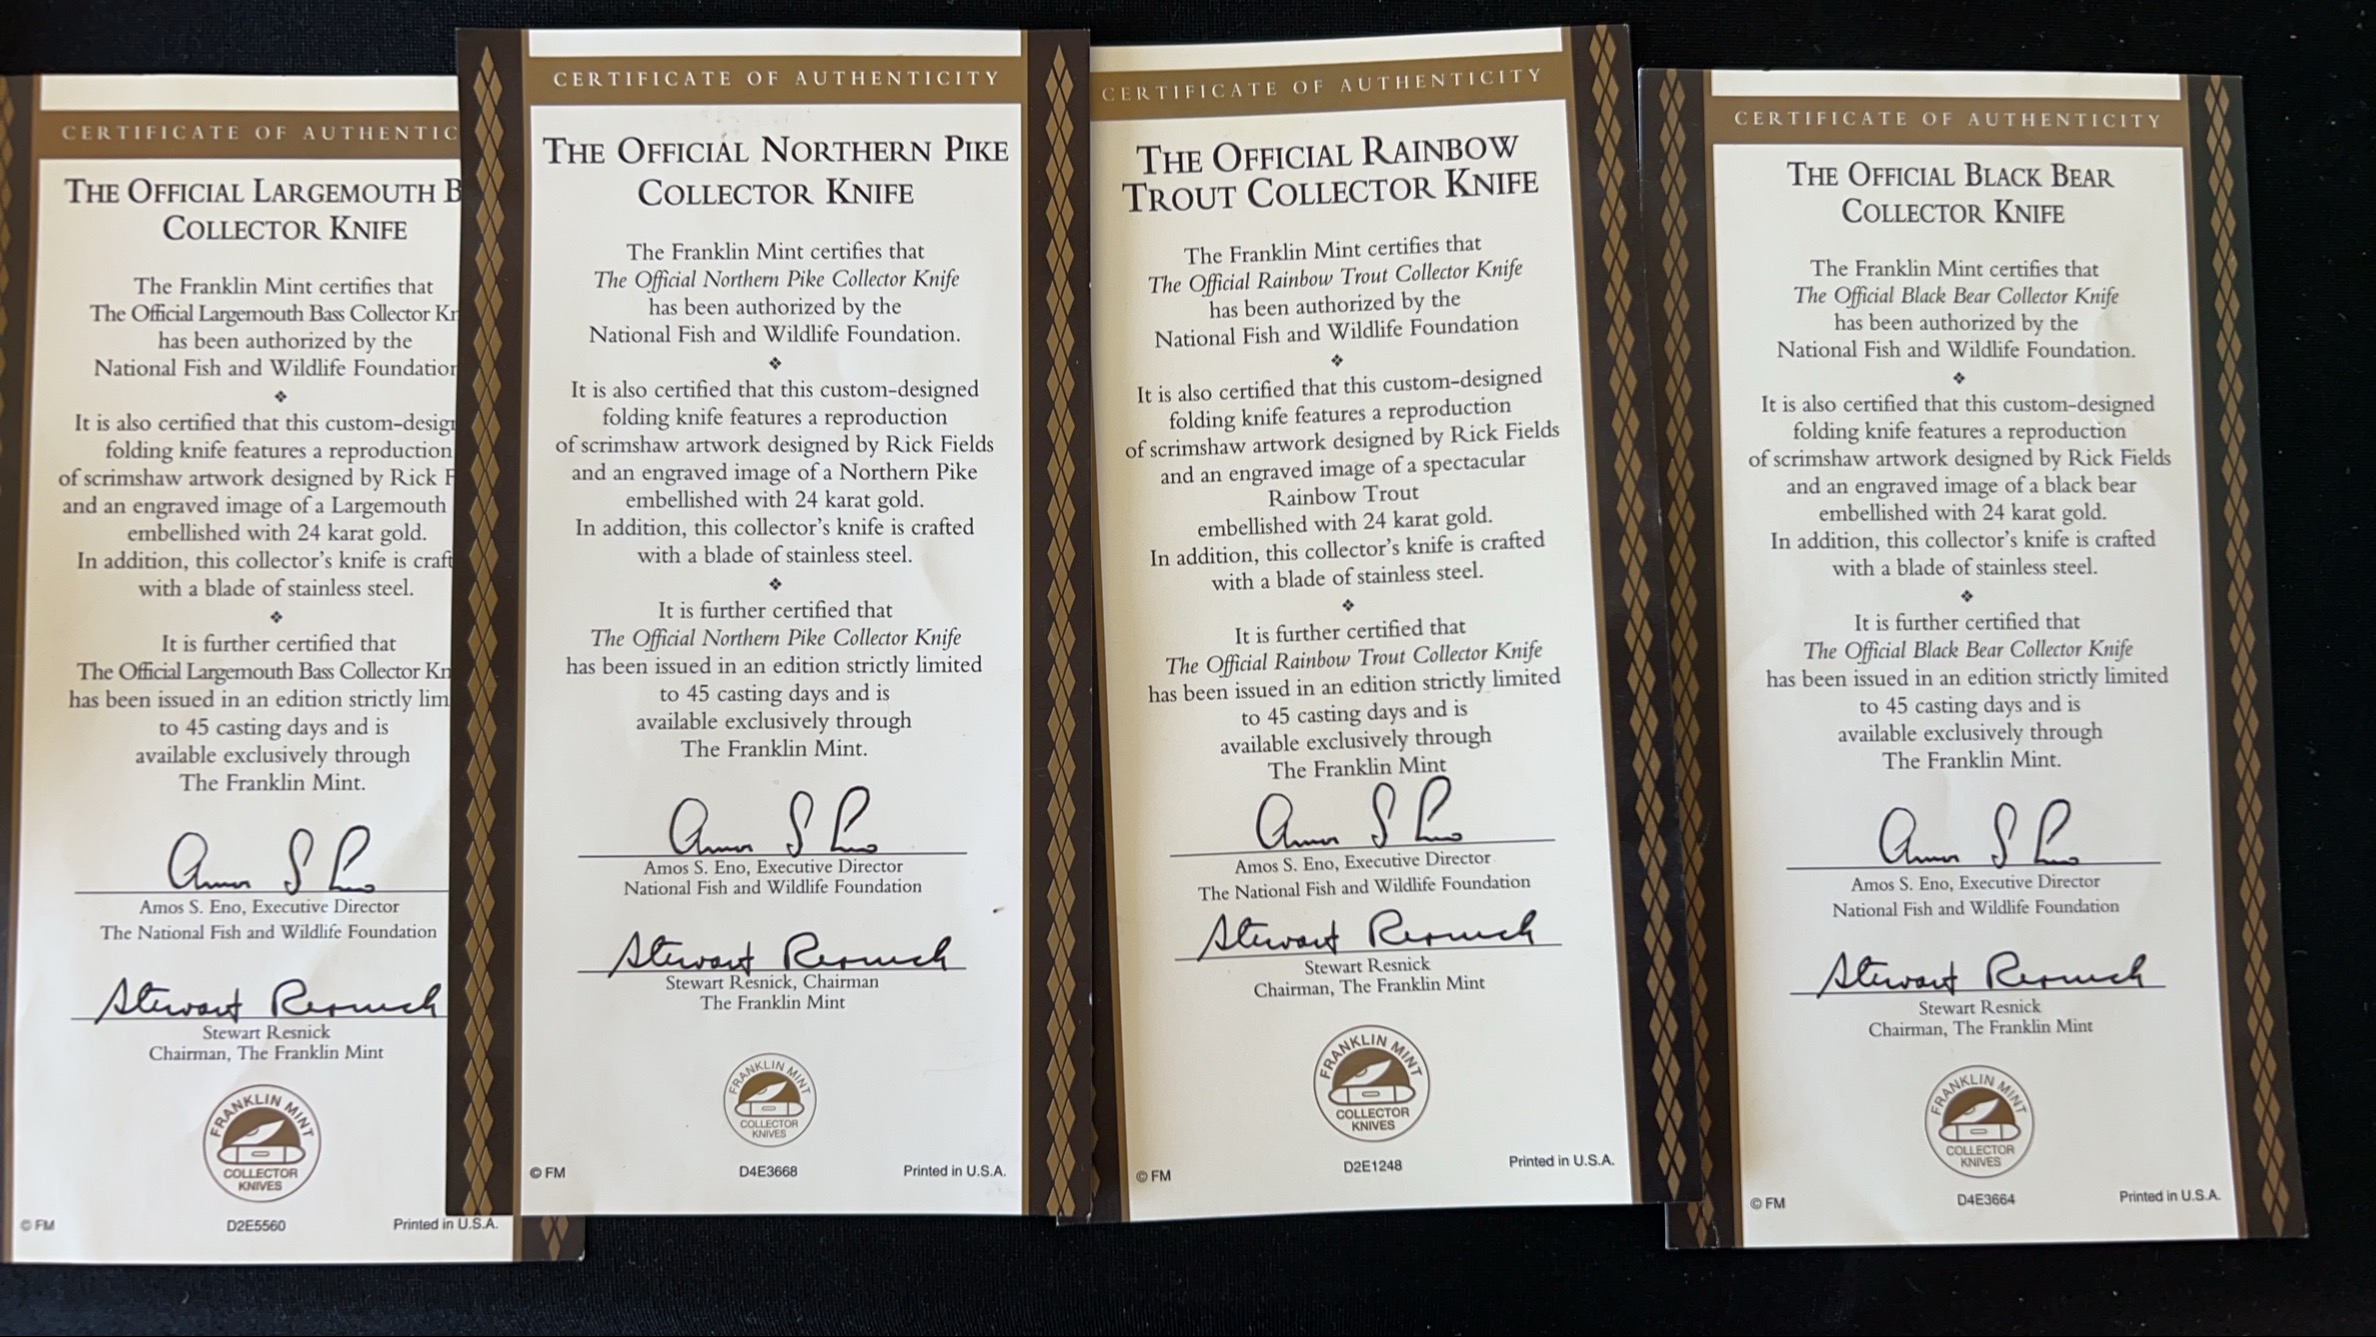 CERTIFICATE OF AUTHENTIC
THE OFFICIAL LARGEMOUTH B
COLLECTOR KNIFE
The Franklin Mint certifies that
The Official Largemouth Bass Collector Kn
has been authorized by the
National Fish and Wildlife Foundation
It is also certified that this custom-design
folding knife features a reproduction
of scrimshaw artwork designed by Rick F
and an engraved image of a Largemouth
embellished with 24 karat gold.
In addition, this collector's knife is craft
with a blade of stainless steel.
It is further certified that
The Official Largemouth Bass Collector Kn
has been issued in an edition strictly lim
to 45 casting days and is
available exclusively through
The Franklin Mint.
Amos S. Eno
Amos S. Eno, Executive Director
The National Fish and Wildlife Foundation
Stewart Resnick
Stewart Resnick
Chairman, The Franklin Mint
FRANKLIN MINT
COLLECTOR
KNIVES
© FM D2E5560 Printed in U.S.A.
CERTIFICATE OF AUTHENTICITY
THE OFFICIAL NORTHERN PIKE
COLLECTOR KNIFE
The Franklin Mint certifies that
The Official Northern Pike Collector Knife
has been authorized by the
National Fish and Wildlife Foundation.
It is also certified that this custom-designed
folding knife features a reproduction
of scrimshaw artwork designed by Rick Fields
and an engraved image of a Northern Pike
embellished with 24 karat gold.
In addition, this collector's knife is crafted
with a blade of stainless steel.
It is further certified that
The Official Northern Pike Collector Knife
has been issued in an edition strictly limited
to 45 casting days and is
available exclusively through
The Franklin Mint.
Amos S. Eno
Amos S. Eno, Executive Director
National Fish and Wildlife Foundation
Stewart Resnick
Stewart Resnick, Chairman
The Franklin Mint
FRANKLIN MINT
COLLECTOR
KNIVES
© FM D4E3668 Printed in U.S.A.
CERTIFICATE OF AUTHENTICITY
THE OFFICIAL RAINBOW
TROUT COLLECTOR KNIFE
The Franklin Mint certifies that
The Official Rainbow Trout Collector Knife
has been authorized by the
National Fish and Wildlife Foundation
It is also certified that this custom-designed
folding knife features a reproduction
of scrimshaw artwork designed by Rick Fields
and an engraved image of a spectacular
Rainbow Trout
embellished with 24 karat gold.
In addition, this collector's knife is crafted
with a blade of stainless steel.
It is further certified that
The Official Rainbow Trout Collector Knife
has been issued in an edition strictly limited
to 45 casting days and is
available exclusively through
The Franklin Mint
Amos S. Eno
Amos S. Eno, Executive Director
The National Fish and Wildlife Foundation
Stewart Resnick
Stewart Resnick
Chairman, The Franklin Mint
FRANKLIN MINT
COLLECTOR
KNIVES
© FM D2E1248 Printed in U.S.A.
CERTIFICATE OF AUTHENTICITY
THE OFFICIAL BLACK BEAR
COLLECTOR KNIFE
The Franklin Mint certifies that
The Official Black Bear Collector Knife
has been authorized by the
National Fish and Wildlife Foundation.
It is also certified that this custom-designed
folding knife features a reproduction
of scrimshaw artwork designed by Rick Fields
and an engraved image of a black bear
embellished with 24 karat gold.
In addition, this collector's knife is crafted
with a blade of stainless steel.
It is further certified that
The Official Black Bear Collector Knife
has been issued in an edition strictly limited
to 45 casting days and is
available exclusively through
The Franklin Mint.
Amos S. Eno
Amos S. Eno, Executive Director
National Fish and Wildlife Foundation
Stewart Resnick
Stewart Resnick
Chairman, The Franklin Mint
FRANKLIN MINT
COLLECTOR
KNIVES
© FM D4E3664 Printed in U.S.A.